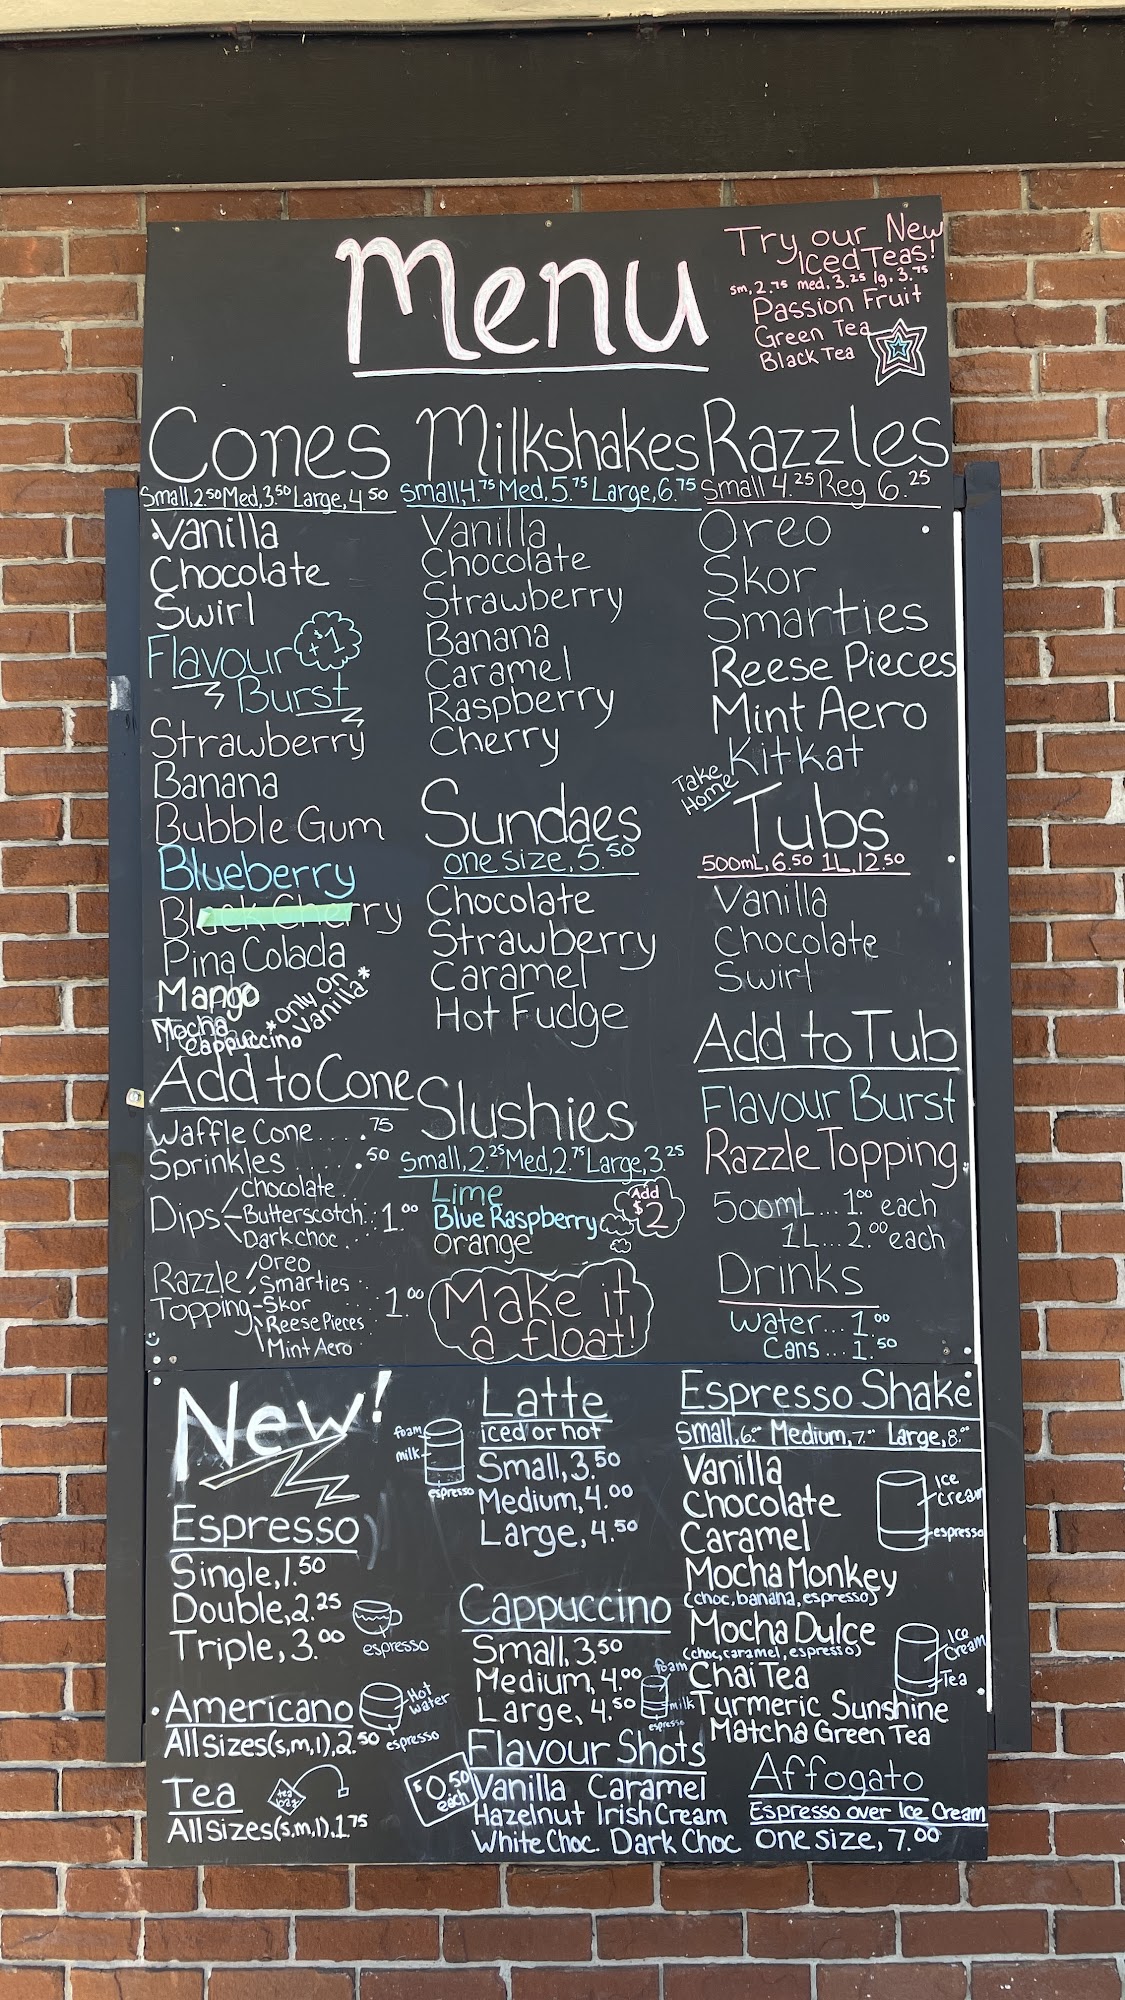 Menu
Try our New
Iced Teas!
sm, 2.75 med, 3.25 lg, 3.75
Passion Fruit
Green Tea
Black Tea
Cones
Small, 2.50 Med, 3.50 Large, 4.50
Vanilla
Chocolate
Swirl
Flavour
Burst
+$1
Strawberry
Banana
Bubble Gum
Blueberry
Black Cherry
Pina Colada
Mango
Mocha
Cappuccino
*Only on
Vanilla*
Add to Cone
Waffle Cone.....75
Sprinkles.......50
Dips
Chocolate..
Butterscotch..
Dark choc...
1.00
Razzle
Topping
Oreo
Smarties..
Skor
Reese Pieces
Mint Aero
1.00
Milkshakes
Small 4.75 Med, 5.75 Large, 6.75
Vanilla
Chocolate
Strawberry
Banana
Caramel
Raspberry
Cherry
Sundaes
one size, 5.50
Chocolate
Strawberry
Caramel
Hot Fudge
Slushies
Small, 2.25 Med, 2.75 Large, 3.25
Lime
Blue Raspberry
Orange
Add
$2
Make it
a float!
Razzles
Small 4.25 Reg 6.25
Oreo
Skor
Smarties
Reese Pieces
Mint Aero
Kitkat
Take
Home
Tubs
500mL, 6.50 1L, 12.50
Vanilla
Chocolate
Swirl
Add to Tub
Flavour Burst
Razzle Topping
500mL...1.00 each
1L...2.00 each
Drinks
Water...1.00
Cans...1.50
New!
Espresso
Single, 1.50
Double, 2.25
Triple, 3.00
espresso
Americano
Hot
Water
espresso
All Sizes (s,m,l), 2.50
Tea
tea
bag
All Sizes (s,m,l), 1.75
Latte
iced or hot
foam
milk
espresso
Small, 3.50
Medium, 4.00
Large, 4.50
Cappuccino
Small, 3.50
Medium, 4.00
Large, 4.50
foam
milk
espresso
Flavour Shots
$0.50
each
Vanilla Caramel
Hazelnut Irish Cream
White Choc. Dark Choc
Espresso Shake
Small, 6.00 Medium, 7.00 Large, 8.00
Vanilla
Chocolate
Caramel
Ice
cream
espresso
Mocha Monkey
(choc, banana, espresso)
Mocha Dulce
(choc, caramel, espresso)
Chai Tea
Turmeric Sunshine
Matcha Green Tea
Ice
Cream
Tea
Affogato
Espresso over Ice Cream
one size, 7.00